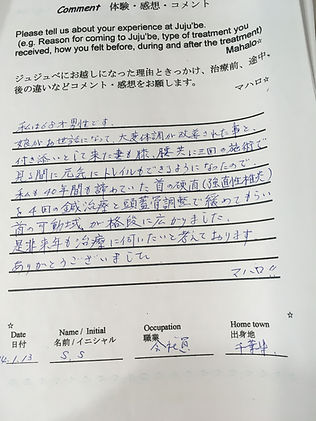 Comment 体験・感想・コメント
Please tell us about your experience at Juju'be.
(e.g. Reason for coming to Juju'be, type of treatment you
received, how you felt before, during and after the treatment)
Mahalo☆
ジュジュベにお越しになった理由ときっかけ、治療前、途中、
後の違いなどコメント・感想をお願します。
マハロ☆
私は65才男性です。
娘がお世話になって、大変体調が改善された事と、
付き添いとして来た妻も膝、腰共に三回の施術で
見る間に元気にトレイルもできるようになったので、
私も40年間も諦めていた首の硬直(強直性椎炎)
を4回の鍼治療と頭蓋骨調整で緩めてもらい
首の可動域が格段に広がりました。
是非来年も治療に伺いたいと考えております
ありがとうございました
マハロ!!
☆ ☆
Date Name / Initial Occupation Home town
日付 名前/イニシャル 職業 出身地
4.1.13 S.S 会社員 千葉県